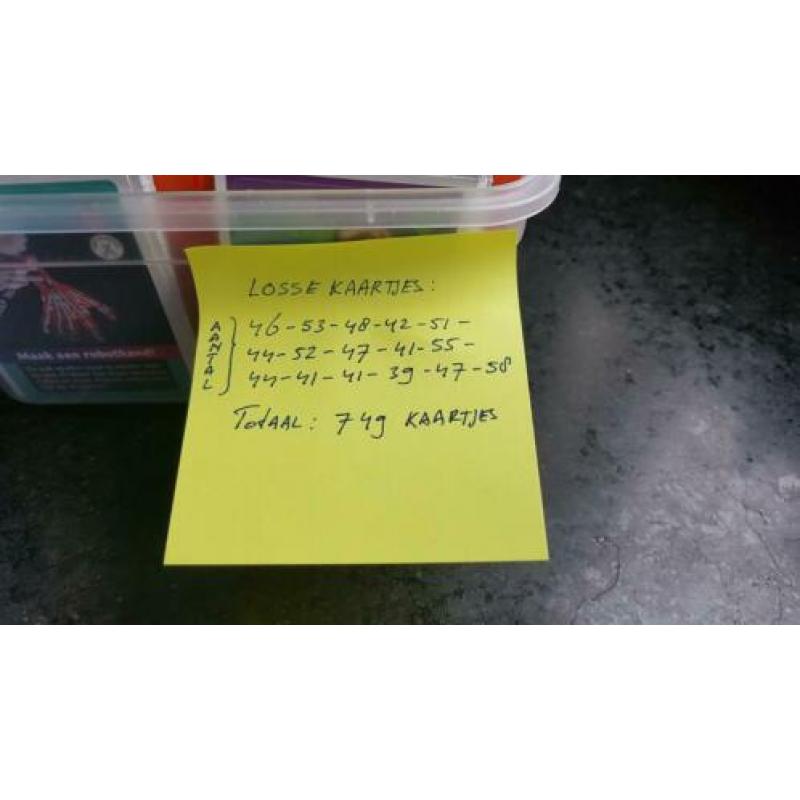 LOSSE KAARTJES:
AANTAL
46-53-48-42-51-
44-52-47-41-55-
44-41-41-39-47-58
TOTAAL: 749 KAARTJES
Maak een robothand!